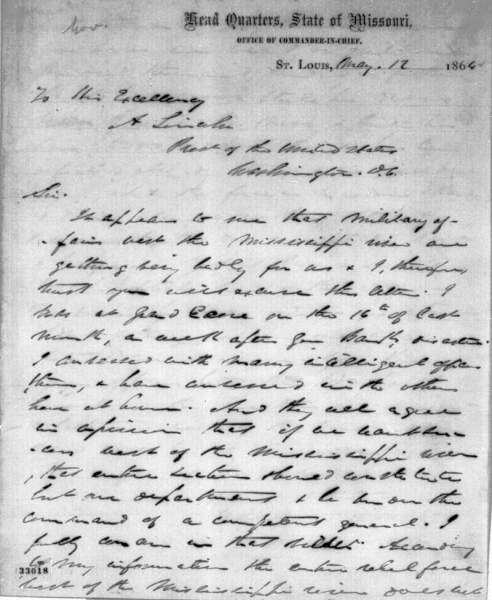 Gov.
Head Quarters, State of Missouri,
OFFICE OF COMMANDER-IN-CHIEF,
ST. LOUIS, May. 12 1864
To His Excellency
A Lincoln
Prest of the United States
Washington. D.C.
Sir.
It appears to me that Military af-
fairs west the Mississippi river are
getting very badly for us & I, therefore
trust you will excuse this letter. I
was at Grand Ecore on the 16th of last
month, a week after Gen Banks disaster.
I conversed with many intelligent officers
there, & have conversed with others
here at home. And they all agree
in opinion that if we
west of the Mississippi river
that entire section should constitute
but one department & be under the
command of a competent general. I
fully concur in that . According
to my information the entire rebel force
west of the Mississippi river does not
33018